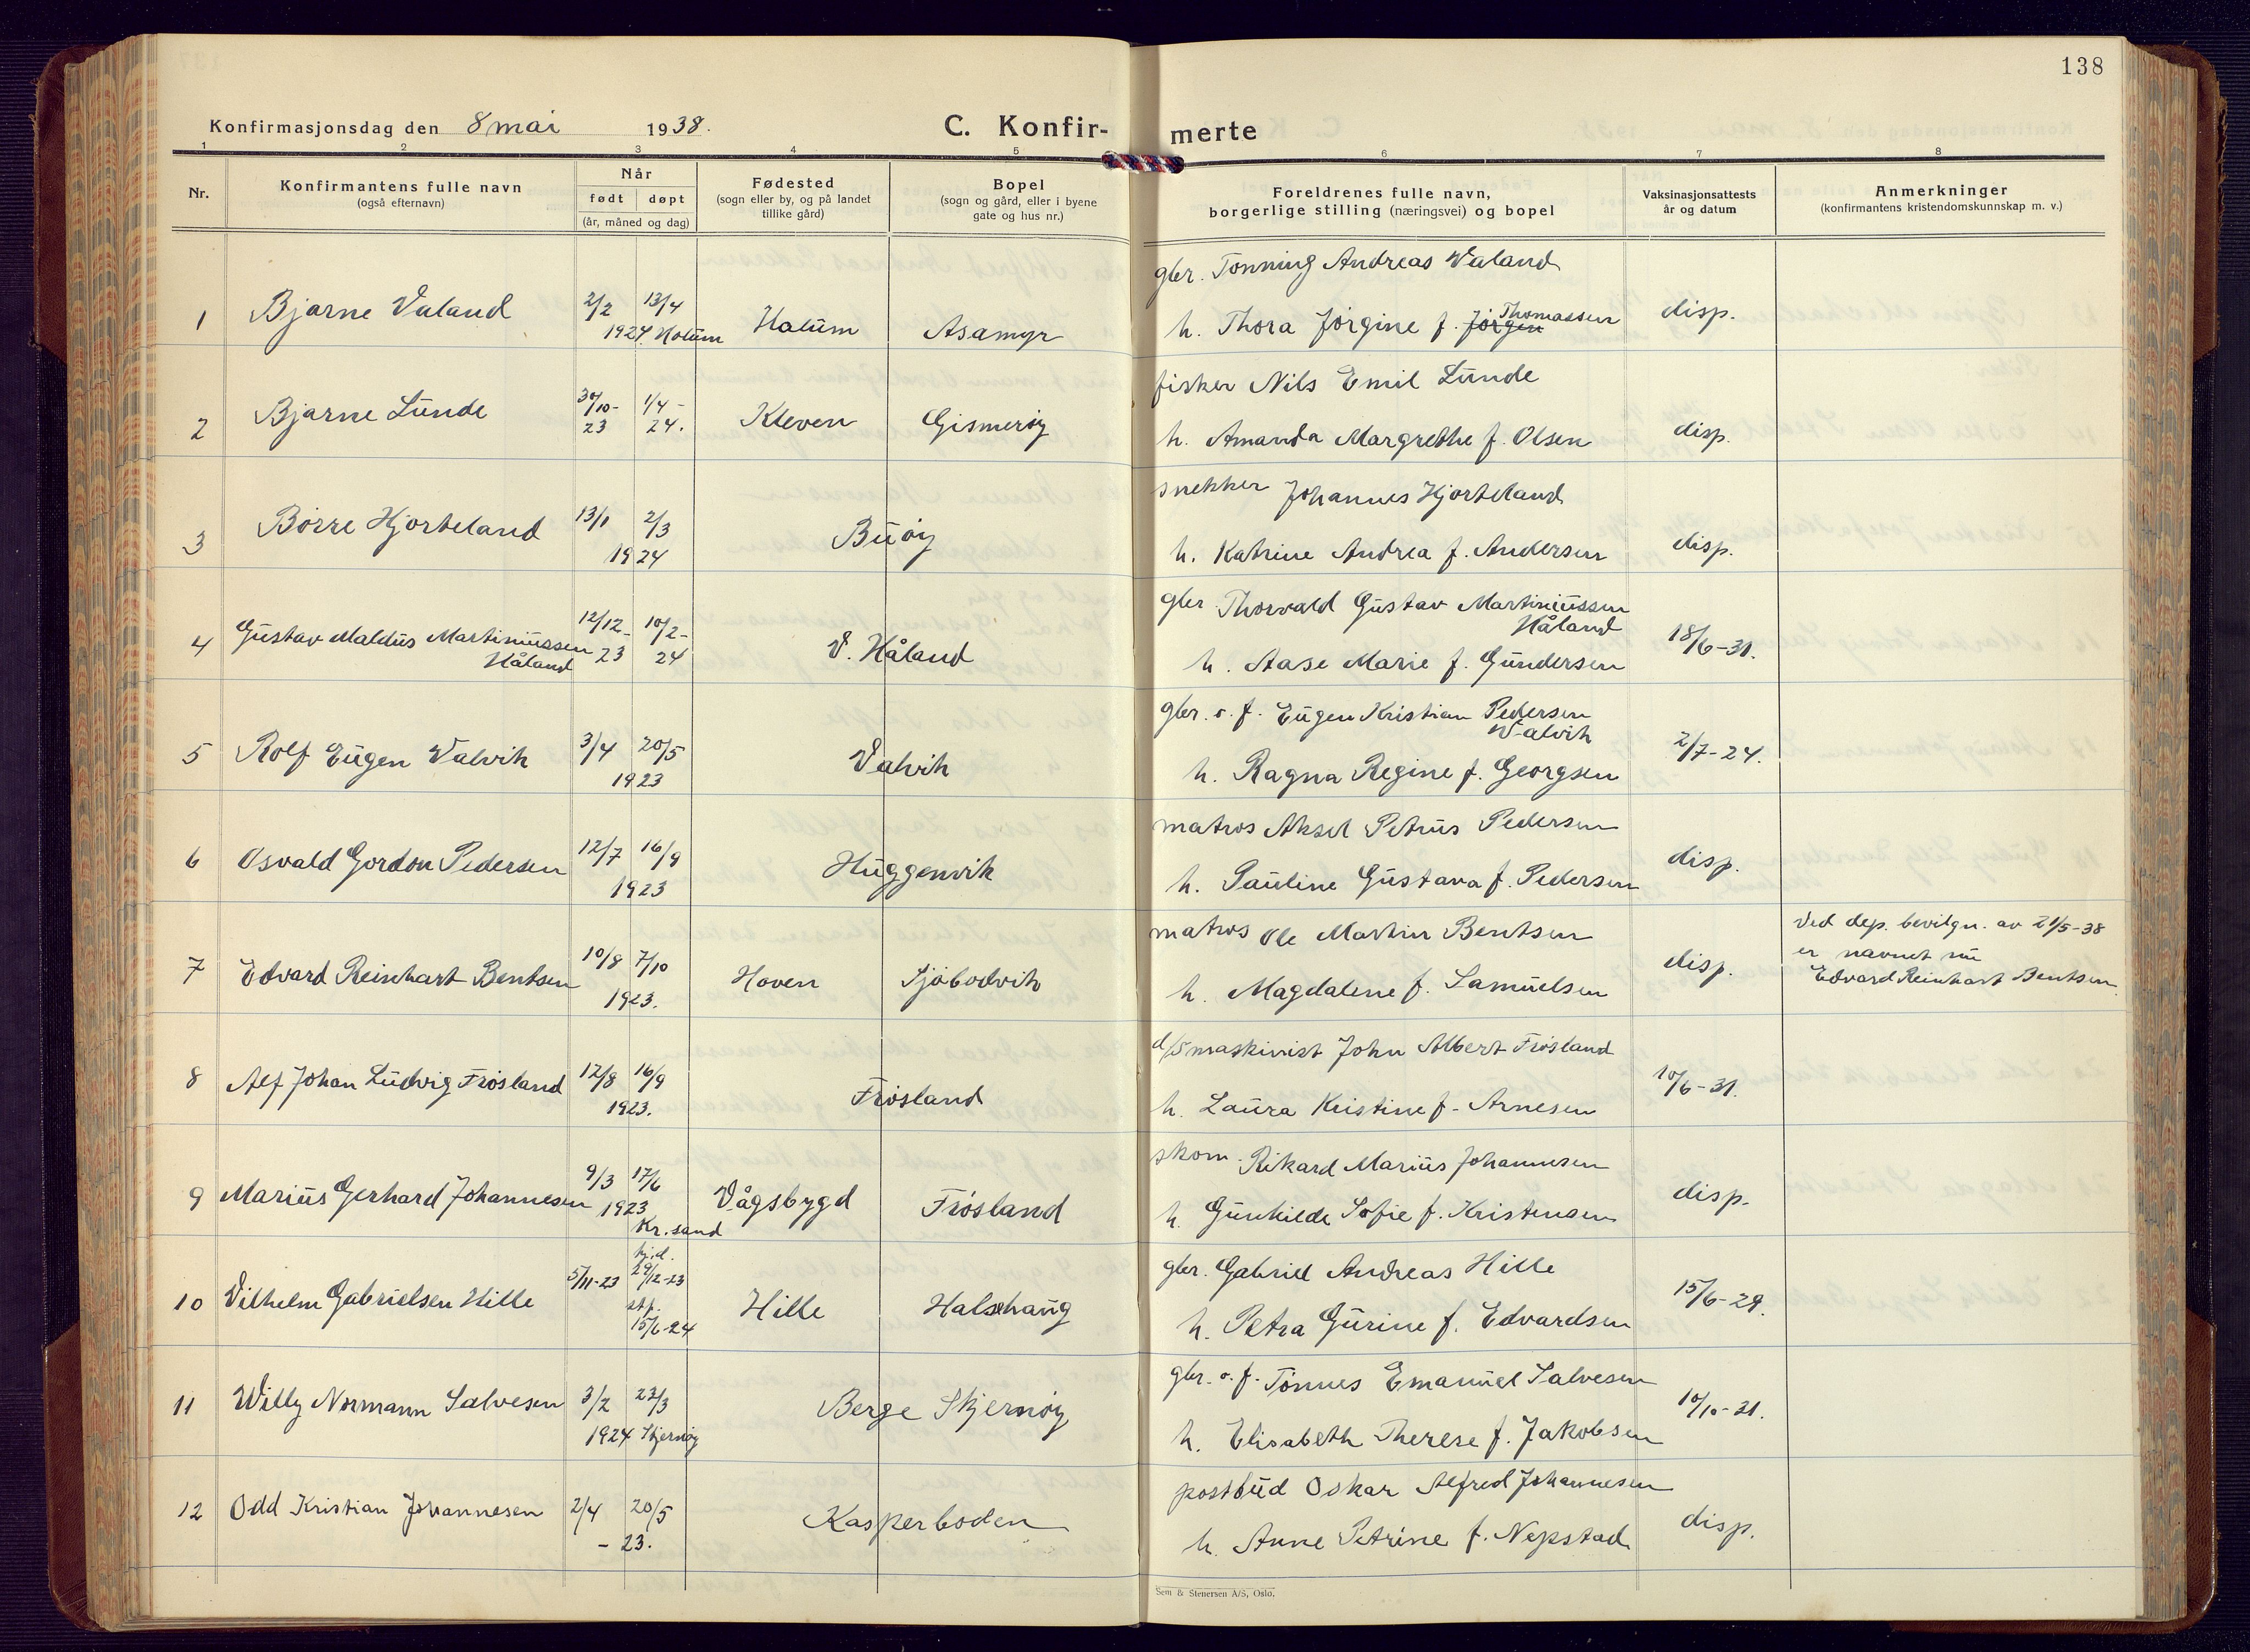 138
Konfirmasjonsdag den 8 mai 1938.
C. Konfir-merte
1 2 3 4 5 6 7 8
Nr.
Konfirmantens fulle navn
(også efternavn)
Når
født døpt
(år, måned og dag)
Fødested
(sogn eller by, og på landet
tillike gård)
Bopel
(sogn og gård, eller i byene
gate og hus nr.)
Foreldrenes fulle navn,
borgerlige stilling (næringsvei) og bopel
Vaksinasjonsattests
år og datum
Anmerkninger
(konfirmantens kristendomskunnskap m. v.)
gbr. Tønning Andreas Valand
1 Bjarne Valand 2/2 13/4 1924. Holum Holum Åsamyr
h. Thora Jørgine f. Jørgen Thomassen disp.
fisker Nils Emil Lunde
2 Bjarne Lunde 30/10-23 1/4-24. Kleven Gismerøy
h. Amanda Margrethe f. Olsen disp.
snekker Johannes Hjorteland
3 Børre Hjorteland 13/1 2/3 1924 Buøy
h. Katrine Andrea f. Andersen disp.
gbr Thorvald Gustav Martiniussen
Håland
4 Gustav Maldus Martiniussen
Håland 12/12-23 10/2-24 V. Håland
h. Aase Marie f. Gundersen 18/6-31.
gbr. o. f. Eugen Kristian Pedersen
Valvik
5 Rolf Eugen Valvik 3/4 20/5 1923 Valvik
h. Ragna Regine f. Georgsen 2/7-24.
matros Aksel Petrus Pedersen
6 Osvald Gordon Pedersen 12/7 16/9 1923 Huggenvik
h. Pauline Gustava f. Pedersen disp.
matros Ole Martin Bentsen
7 Edvard Reinhart Bentsen 10/8 7/10 1923. Hoven Sjøbodvik
h. Magdalene f. Samuelsen disp.
Ved dep. bevilgn. av 21/5-38
er navnet nu
Edvard Reinhart Bentsen.
d/s maskinist John Albert Frøsland
8 Alf Johan Ludvig Frøsland 12/8 16/9 1923. Frøsland
h. Laura Kristine f. Arnesen 10/6-31.
skom. Rikard Marius Johannesen
9 Marius Gerhard Johannesen 9/3 17/6 1923 Kr.sand Vågsbygd Frøsland
h. Gunhilde Sofie f. Kristensen disp.
gbr. Gabriel Andreas Hille
10 Vilhelm Gabrielsen Hille 5/11-23 hj.d. 29/12-23 stf. 15/6-24 Hille Halshaug
h. Petra Gurine f. Edvardsen 15/6-29.
gbr. o. f. Tønnes Emanuel Salvesen
11 Willy Normann Salvesen 3/2 23/3 1924 Skjernøy Berge Skjernøy
h. Elisabeth Therese f. Jakobsen 10/10-31.
postbud Oskar Alfred Johannesen
12 Odd Kristian Johannesen 2/4 20/5 -23. Kasperboden
h. Anne Petrine f. Nepstad disp.
Sem & Stenersen A/S, Oslo.